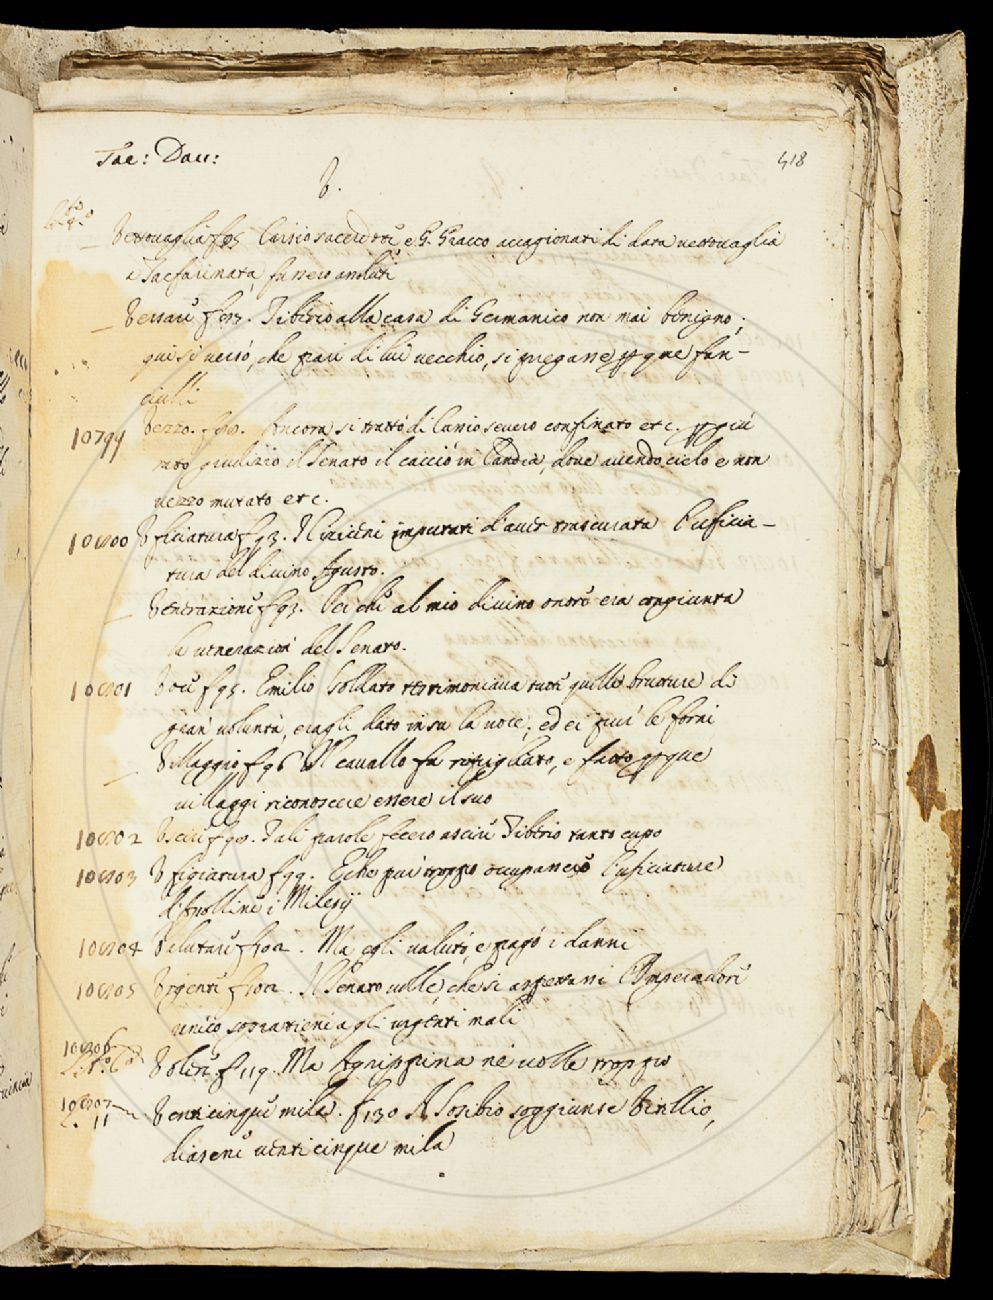 Tac: Dau:
418
V.
L.º 4.º
Vettovaglia f 95 Carsio sacerdote e G. Gracco accagionati di data vettovaglia
a Tacfarinata, furrero assoluti
Versare f 93. Tiberio alla casa di Germanico non mai benigno;
qui si versò, che pari di lui vecchio, si pregasse per que fan-
ciulli
10799 Vezzo. f 90. Ancora si trattò di Cassio severo confinato etc. per più
suo giudizio il Senato il cacciò in Candia, dove avendo cielo e non
vezzo mutato etc.
10800 Vficiatura f 93. I Ciziceni imputati d'aver trascurata l'uficia-
tura del divino Agusto.
Venerazione f 93. Sei che al mio divino onore era congiunta
la venerazion del Senato.
10801 Voce f 95. Emilio soldato testimoniava tutte quelle brutture di
gran volontà, eragli dato in su la voce; ed ei più le forni
Villaggio f 96 Il cavallo fu ripigliato, e fatto per que
villaggi riconoscere essere il suo
10802 Vscire f 98. Tali parole fecero uscire Tiberio tanto cupo
10803 Vfigiatura f 99. E che pur troppo occupareno l'uficiature
d'Apolline i Milesij
10804 Valutare f 102. Ma egli valutò, e pagò i danni
10805 Vrgente f 102. Il Senato volle, che si aspettassi l'Imperadore
unico sopratieni agli urgenti mali
10806
L.º 6.º Volere f 119. Ma Agrippina ne volle troppo
10807
L. 11 Venticinque mila. f 130 A Sosibio soggiunse Vitellio,
diasene venticinque mila